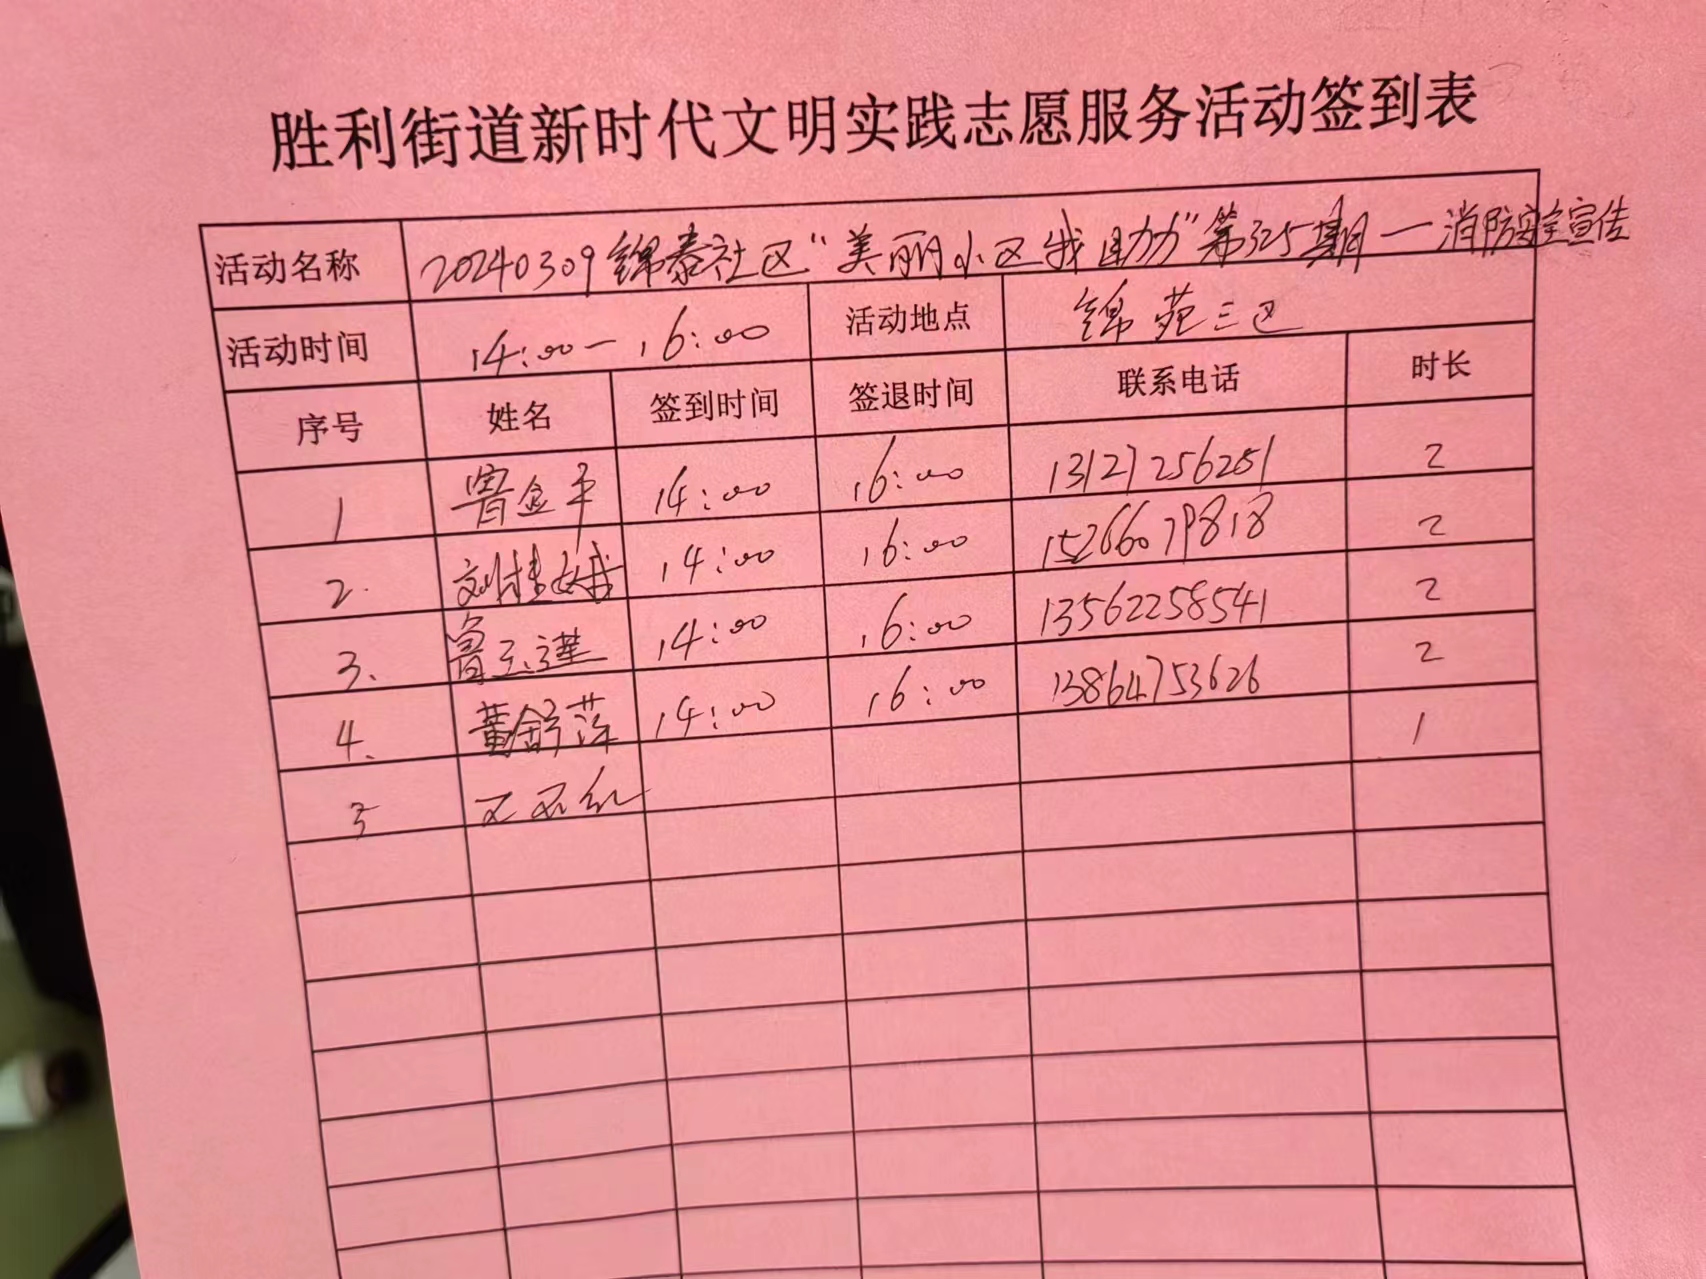 胜利街道新时代文明实践志愿服务活动签到表
活动名称 20240309锦泰社区“美丽小区我助力”第325期—消防安全宣传
活动时间 14:00—16:00 活动地点 锦苑三区
序号 姓名 签到时间 签退时间 联系电话 时长
1 鲁金平 14:00 16:00 13121256251 2
2. 刘桂娥 14:00 16:00 15266079818 2
3. 鲁玉莲 14:00 16:00 13562258541 2
4. 黄舒萍 14:00 16:00 13864753626 2
5 1